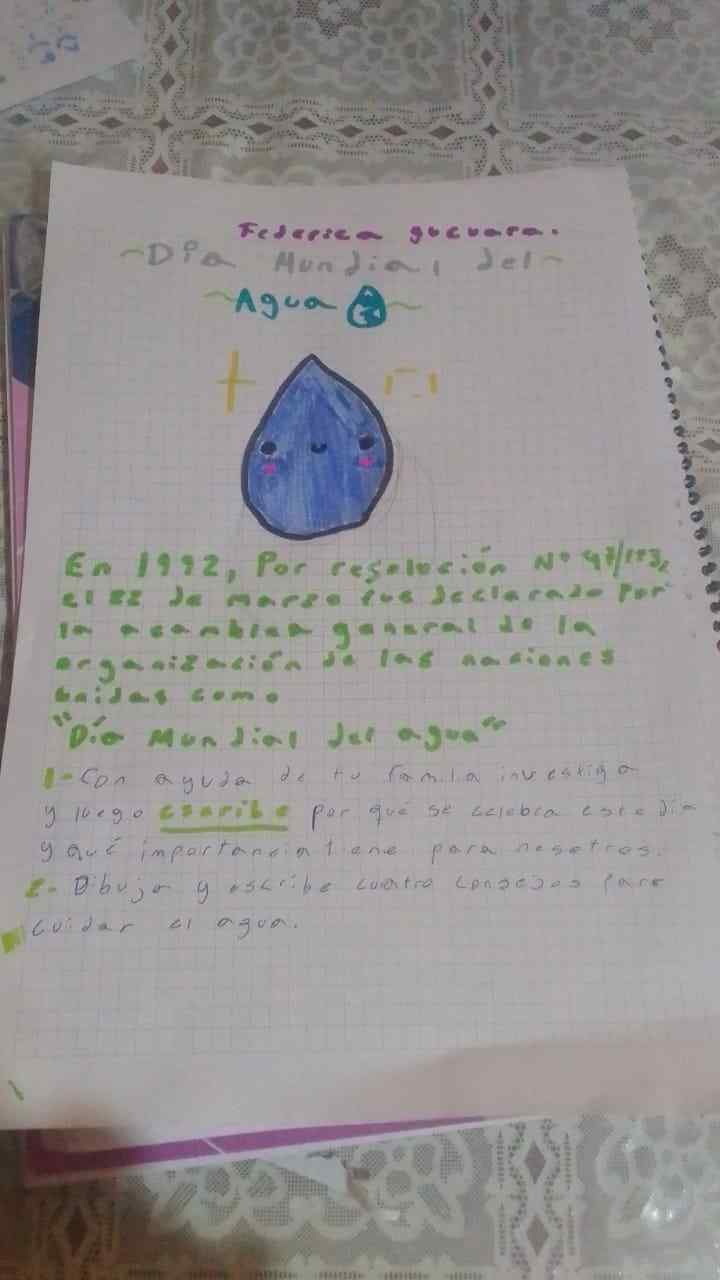 Federica guevara.
~Día Mundial del~
~Agua~
En 1992, Por resolución Nº 47/193,
el 22 de marzo fue declarado por
la asamblea general de la
organización de las naciones
Unidas como
"Día Mundial del agua"
1-Con ayuda de tu familia investiga
y luego escribe por qué se celebra este día
y qué importancia tiene para nosotros.
2- Dibuja y escribe cuatro consejos para
cuidar el agua.